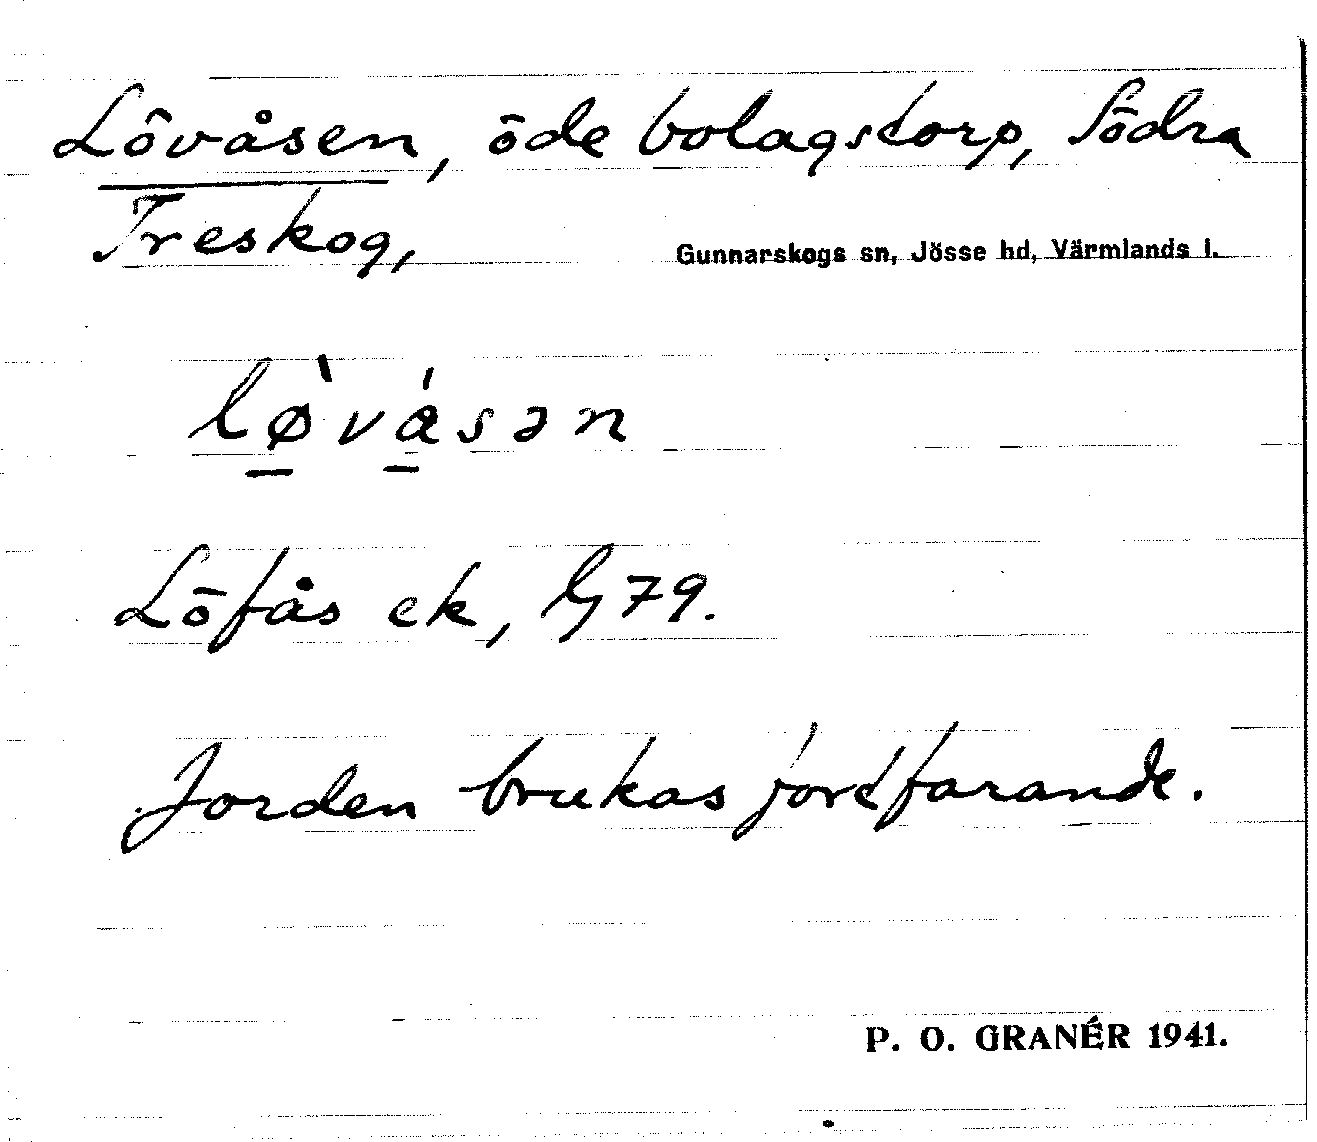 Lövåsen, öde bolagstorp, Södra
Treskog,
Gunnarskogs sn, Jösse hd, Värmlands l.
lø̱̀vá̱sən
Löfås ek, G 79.
Jorden brukas fortfarande.
P. O. GRANÉR 1941.